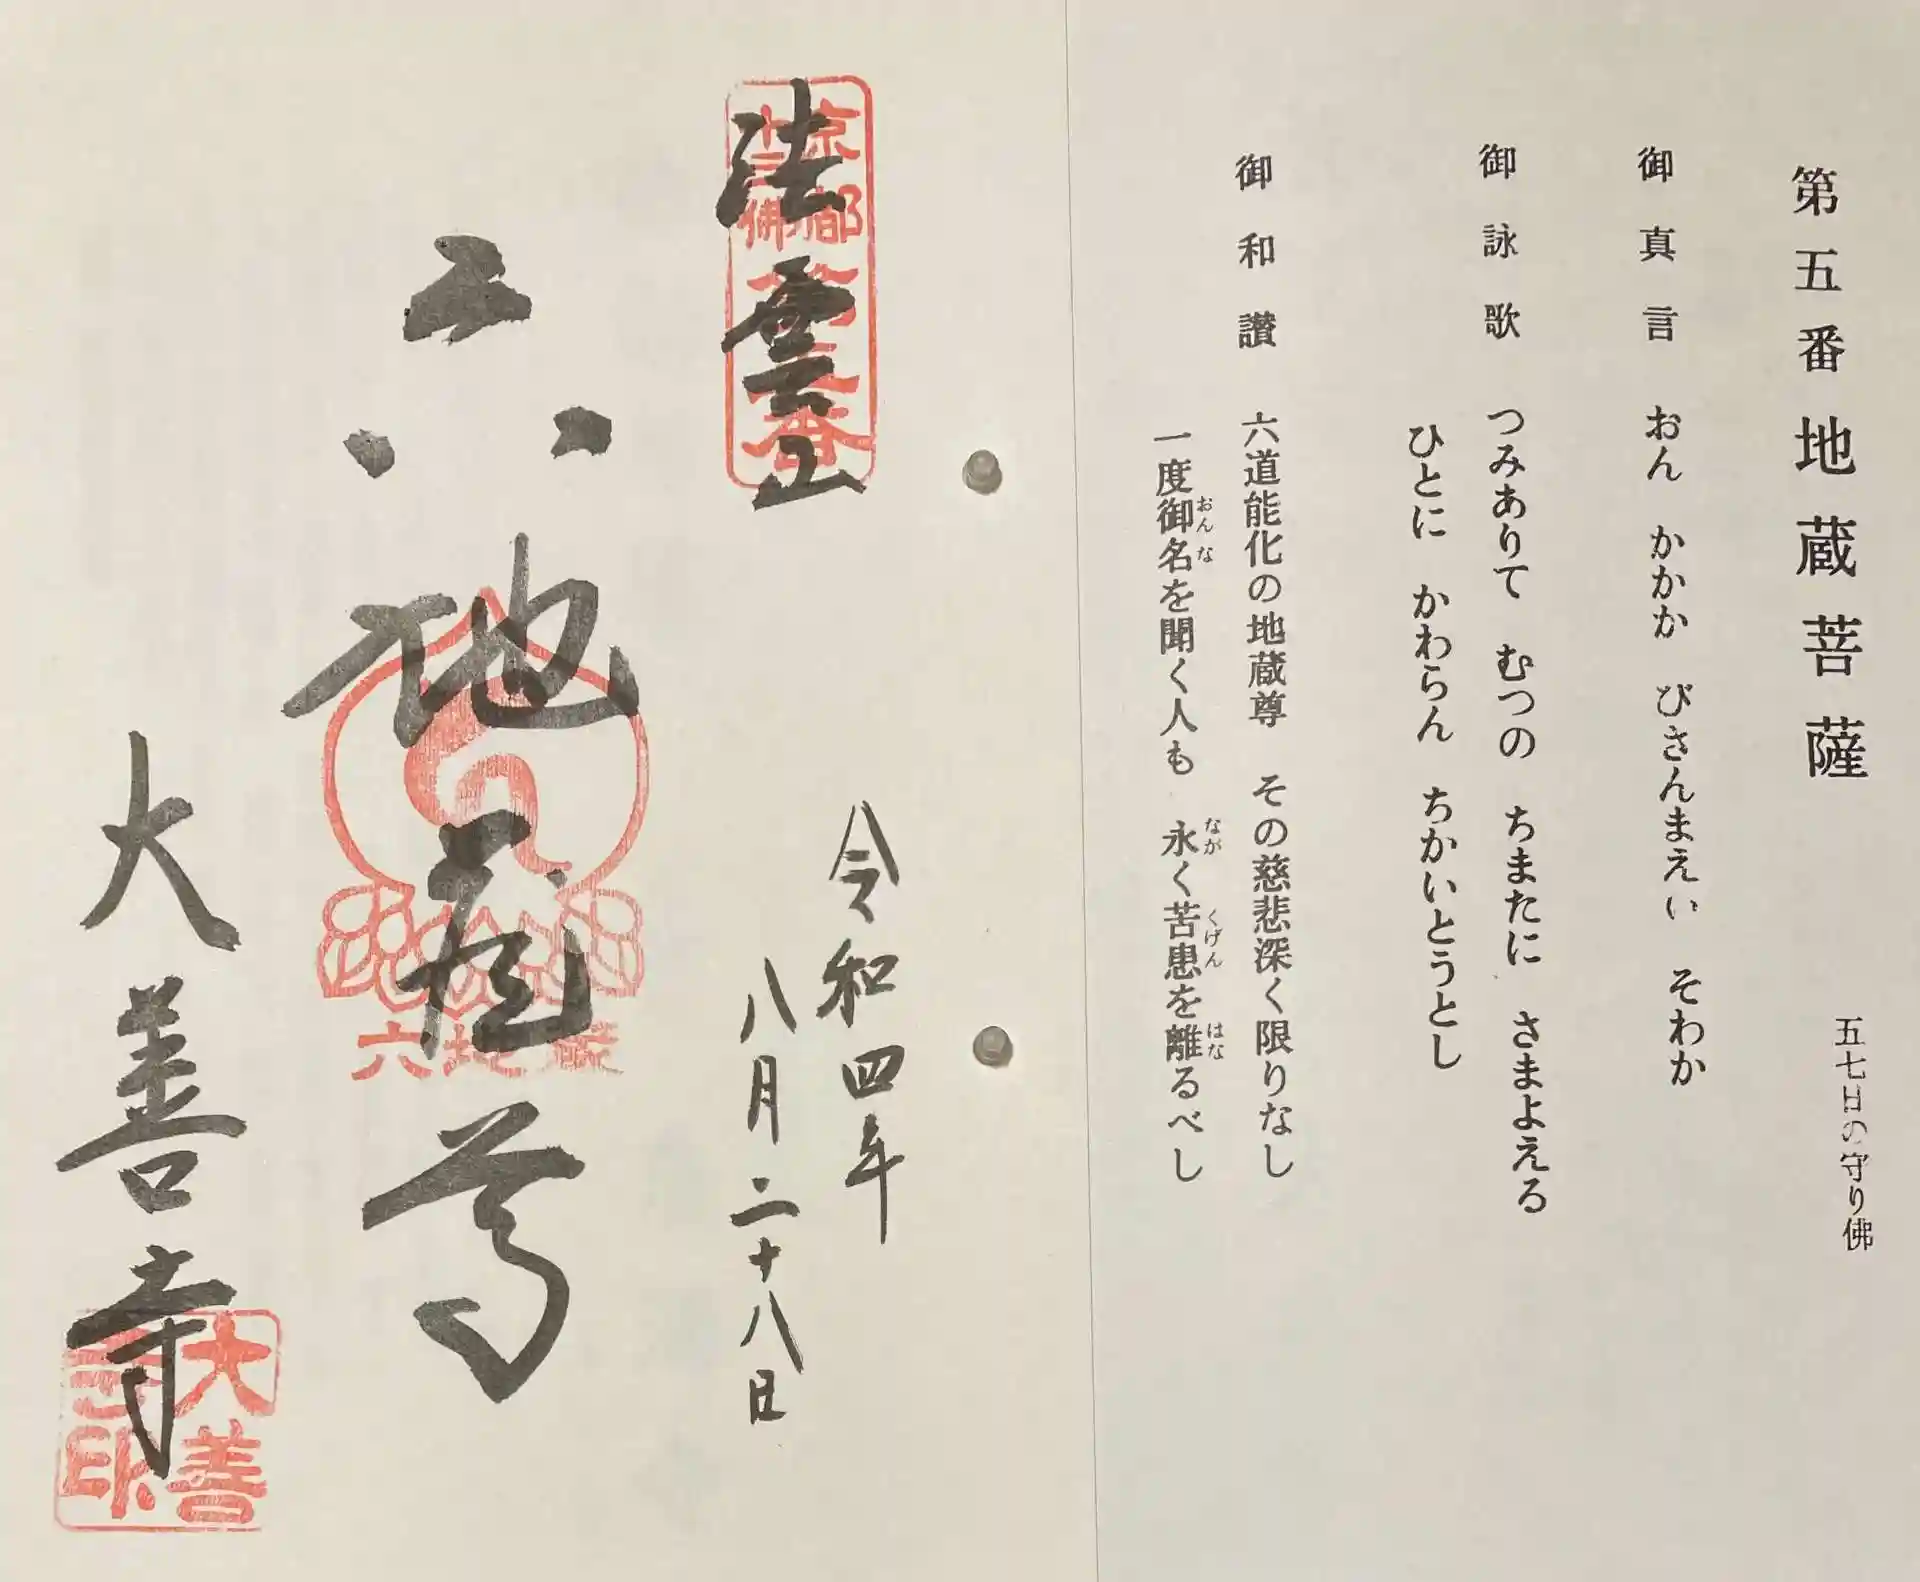 第五番 地蔵菩薩 五七日の守り佛
御真言 おん かかか びさんまえい そわか
御詠歌 つみありて むつの ちまたに さまよえる
ひとに かわらん ちかいとうとし
御和讃 六道能化の地蔵尊 その慈悲深く限りなし
一度御名を聞く人も 永く苦患を離るべし
おんな なが くげん はな
法雲山
京都
十三佛
第五番
令和四年
八月二十八日
六地蔵尊
六地蔵
大善寺
大善
寺印